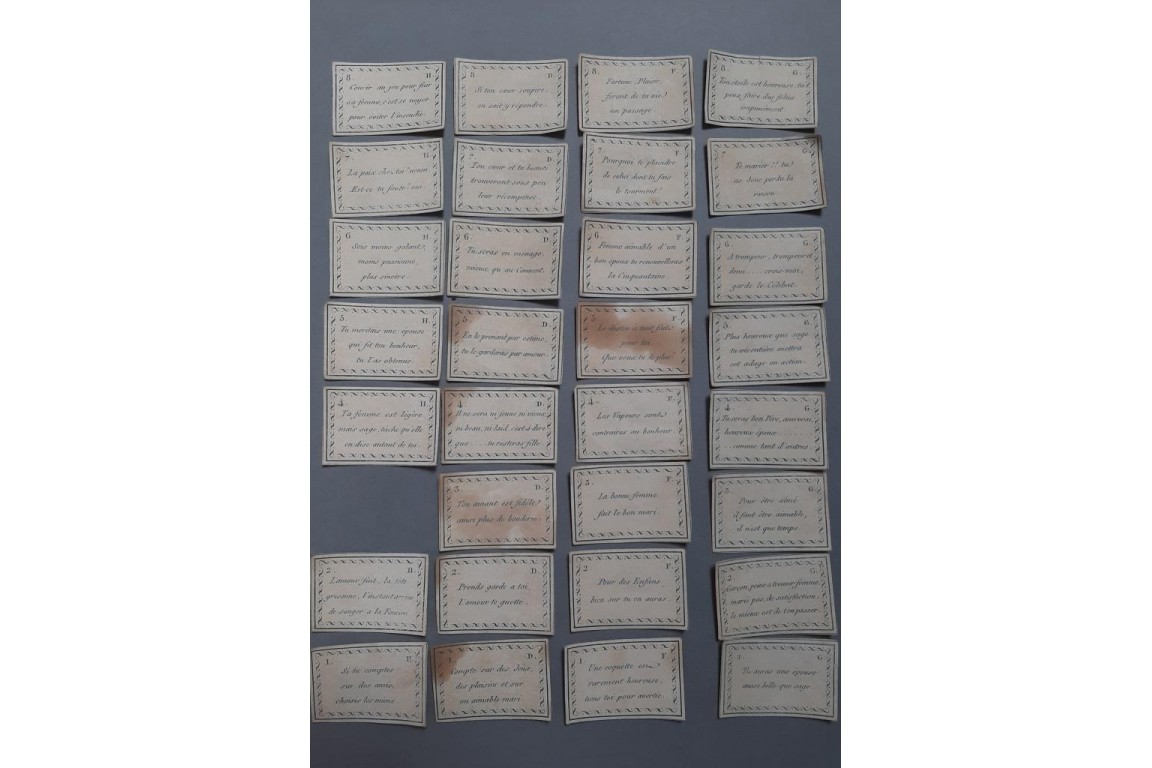 8. H.
Courir au jeu pour fuir
sa femme, c'est se noyer
pour eviter l'incendie.
8. D.
Si ton cœur soupire,
on sait y répondre.
8. F.
Fortune, Plaisir,
feront de ta vie
un passage
8. G.
Ton étoile est heureuse, tu
peux faire des folies
impunément.
7. H.
La paix chez toi
Est-ce ta faute?
7. D.
Ton cœur et ta beauté
trouveront sous peu
leur récompense.
7. F.
Pourquoi te plaindre
de celui dont tu fais
le tourment?
G.
Te marier!! tu
as donc perdu la
raison
6 H.
Sois moins galant,
moins
plus sincère.
6. D.
Tu seras en ménage,
mieux qu'au Couvent.
6. F.
Femme aimable d'un
bon époux tu renouvelleras
la Cinquantaine.
6. G.
A trompeur, trompeur et
demi .... crois-moi,
garde le Célibat.
5. H.
Tu méritais une épouse
qui fit ton bonheur,
tu l'as obtenue.
5. D.
En le prenant par estime,
tu le garderas par amour.
5 F
Le destin a tout fait
pour toi.
Que veux-tu de plus?
5. G.
Plus heureux que sage
mettra
cet adage en action.
4. H.
Ta femme est légère
mais sage, tâche qu'elle
en dise autant de toi.
4 D.
Il ne sera ni jeune ni vieux,
ni beau, ni laid, c'est-à-dire
que .... tu resteras fille.
4. F.
Les Vapeurs sont
contraires au bonheur.
4. G.
Tu seras bon Père, ami vrai,
heureux époux ........
comme tant d'autres.
3 D.
Ton amant est fidèle,
aussi plus de bouderie.
3. F.
La bonne femme
fait le bon mari.
3. G.
Pour être aimé
il faut être aimable,
il n'est que temps.
2. H.
L'amour fuit, la tête
grisonne, l'instant arrive
de songer à la Raison.
2. D.
Prends garde a toi,
l'amour te guette.
2 F.
Pour des Enfans
bien sur tu en auras.
2 G.
Garçon, peine à trouver femme,
marié pas de satisfaction,
le mieux est de t'en passer.
1. H.
Si tu comptes
sur des amis,
choisis les moins
1. D.
Compte sur des Jeux,
des plaisirs et sur
un aimable mari.
1 F.
Une coquette est
rarement heureuse,
tiens toi pour avertie.
1. G.
Tu auras une épouse
aussi belle que sage.